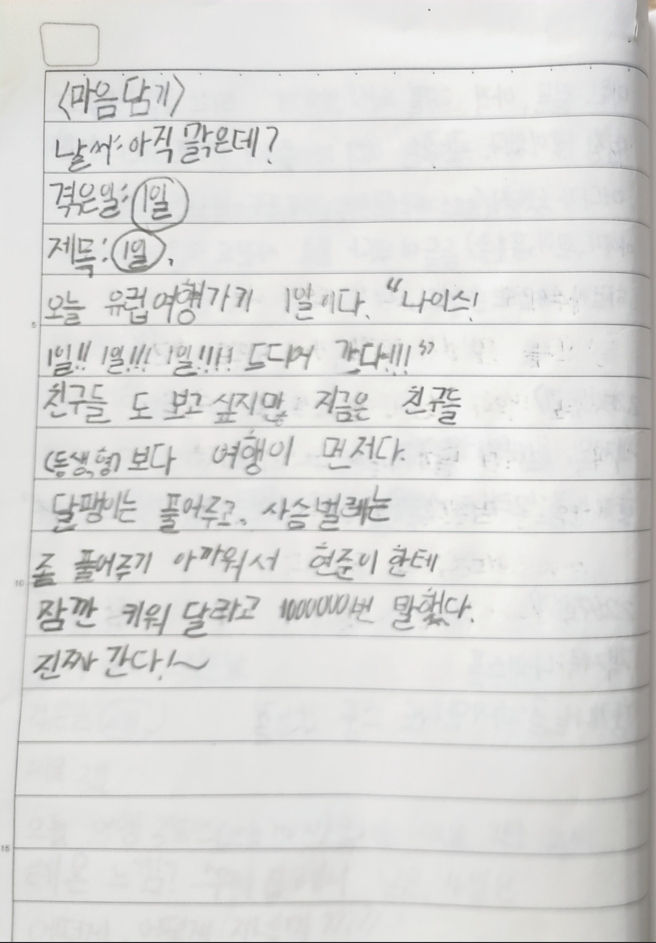 <마음 담기>
날씨: 아직 맑은데?
겪은일: 1일
제목: 1일.
오늘 유럽여행가기 1일이다. "나이스!
1일!! 1일!!! 1일!!!! 드디어 간다!!!"
친구들 도 보고 싶지만 지금은 친구들
(동생,형)보다 여행이 먼저다.
달팽이는 풀어주고, 사슴벌레는
좀 풀어주기 아까워서 현준이 한테
잠깐 키워 달라고 1000000번 말했다.
진짜 간다!~